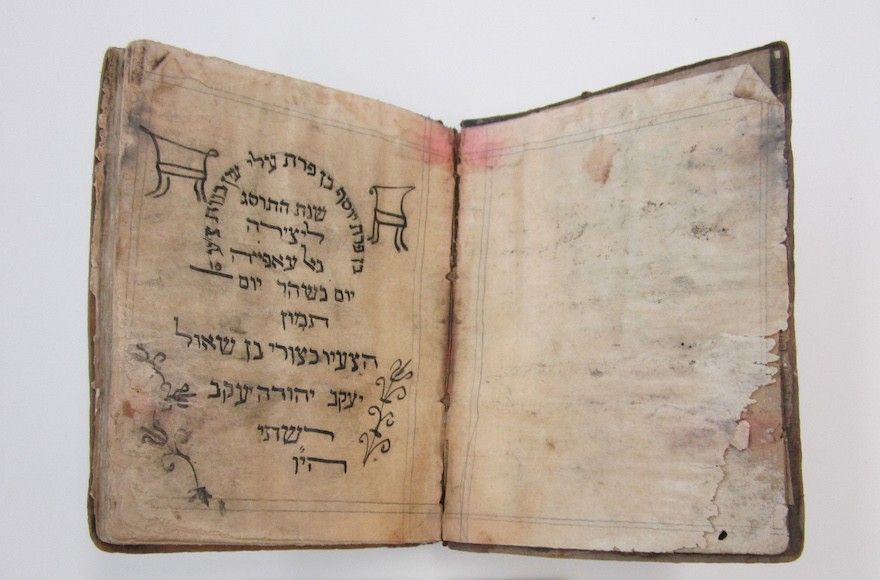 בן פרת יוסף בן פרת עילי עין בנות
שנת התרסג
ליצירה
עאפייה
יום בשהר יום
תמוז
הצעיר בצורי בן שאול
יעקב יהודה יעקב
השתי
הי״ו